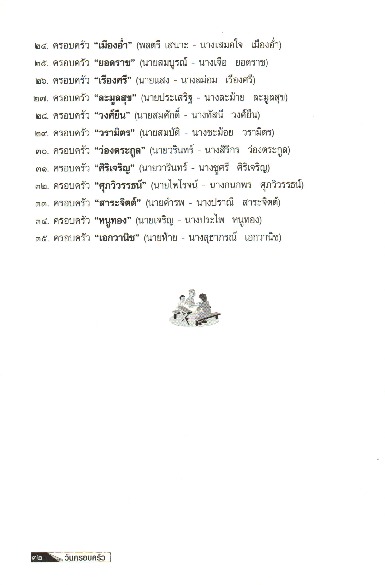 ๒๔. ครอบครัว "เมืองฮ่ำ" (พลตรี เสนาะ - นางเสมอใจ เมืองฮ่ำ)
๒๕. ครอบครัว "ยอดราช" (นายสมบูรณ์ - นางเจือ ยอดราช)
๒๖. ครอบครัว "เรืองศรี" (นายแสง - นางลม่อม เรืองศรี)
๒๗. ครอบครัว "ละมูลสุข" (นายประเสริฐ - นางละม้าย ละมูลสุข)
๒๘. ครอบครัว "วงศ์ยืน" (นายสมศักดิ์ - นางทัสนี วงศ์ยืน)
๒๙. ครอบครัว "วรามิตร" (นายสมบัติ - นางชะม้อย วรามิตร)
๓๐. ครอบครัว "ว่องตระกูล" (นายวรินทร์ - นางสิริกร ว่องตระกูล)
๓๑. ครอบครัว "ศิริเจริญ" (นายวารินทร์ - นางชูศรี ศิริเจริญ)
๓๒. ครอบครัว "ศุภวิวรรธน์" (นายไพโรจน์ - นางกนกพร ศุภวิวรรธน์)
๓๓. ครอบครัว "สาระจิตต์" (นายคำรพ - นางปราณี สาระจิตต์)
๓๔. ครอบครัว "หนูทอง" (นายเจริญ - นางประไพ หนูทอง)
๓๕. ครอบครัว "เอกวานิช" (นายห้าย - นางสุธาภรณ์ เอกวานิช)
๓๒ วันครอบครัว